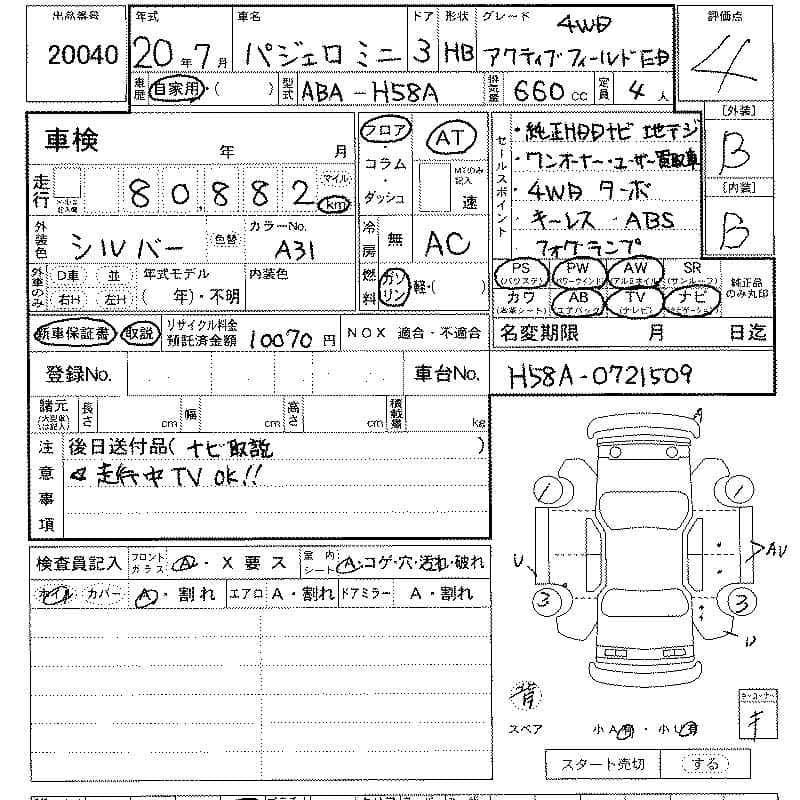 出品番号 年式 車名 ドア 形状 グレード 4WD 評価点
20040 20年7月 パジェロ ミニ 3 HB アクティブフィールドED 4
車歴 自家用・( ) 型式 ABA-H58A 排気量 660cc 定員 4人
車検 年 月 フロア・コラム・ダッシュ AT MTのみ記入 速
セールスポイント
・純正HDDナビ 地デジ
・ワンオーナー・ユーザー買取車
・4WD ターボ
・キーレス・ABS
フォグランプ
[外装] B
[内装] B
走行 80,882 マイル km
外装色 シルバー 色替 カラーNo. A31 冷房 無 AC
外車のみ D車 並 右H 左H 年式モデル ( 年)・不明 内装色 燃料 ガソリン・軽・( )
PS (パワステ) PW (パワーウインド) AW (アルミホイル) SR (サンルーフ) 純正品のみ丸印
カワ (本革シート) AB (エアバッグ) TV (テレビ) ナビ (ナビゲーション)
新車保証書 取説 リサイクル料金預託済金額 10070円 NOX 適合・不適合 名変期限 月 日迄
登録No. 車台No. H58A-0721509
諸元 (大型車は記入) 長さ cm 幅 cm 高さ cm 積載量 kg
注意事項 後日送付品( ナビ取説 )
走行中TV OK!!
検査員記入 フロントガラス A・X要ス 室内シート A・コゲ・穴・汚れ・破れ
ホイル カバー A・割れ エアロ A・割れ ドアミラー A・割れ
A
U
AU
U
3 3
スペア 小A有・小U有
スタート売切 する